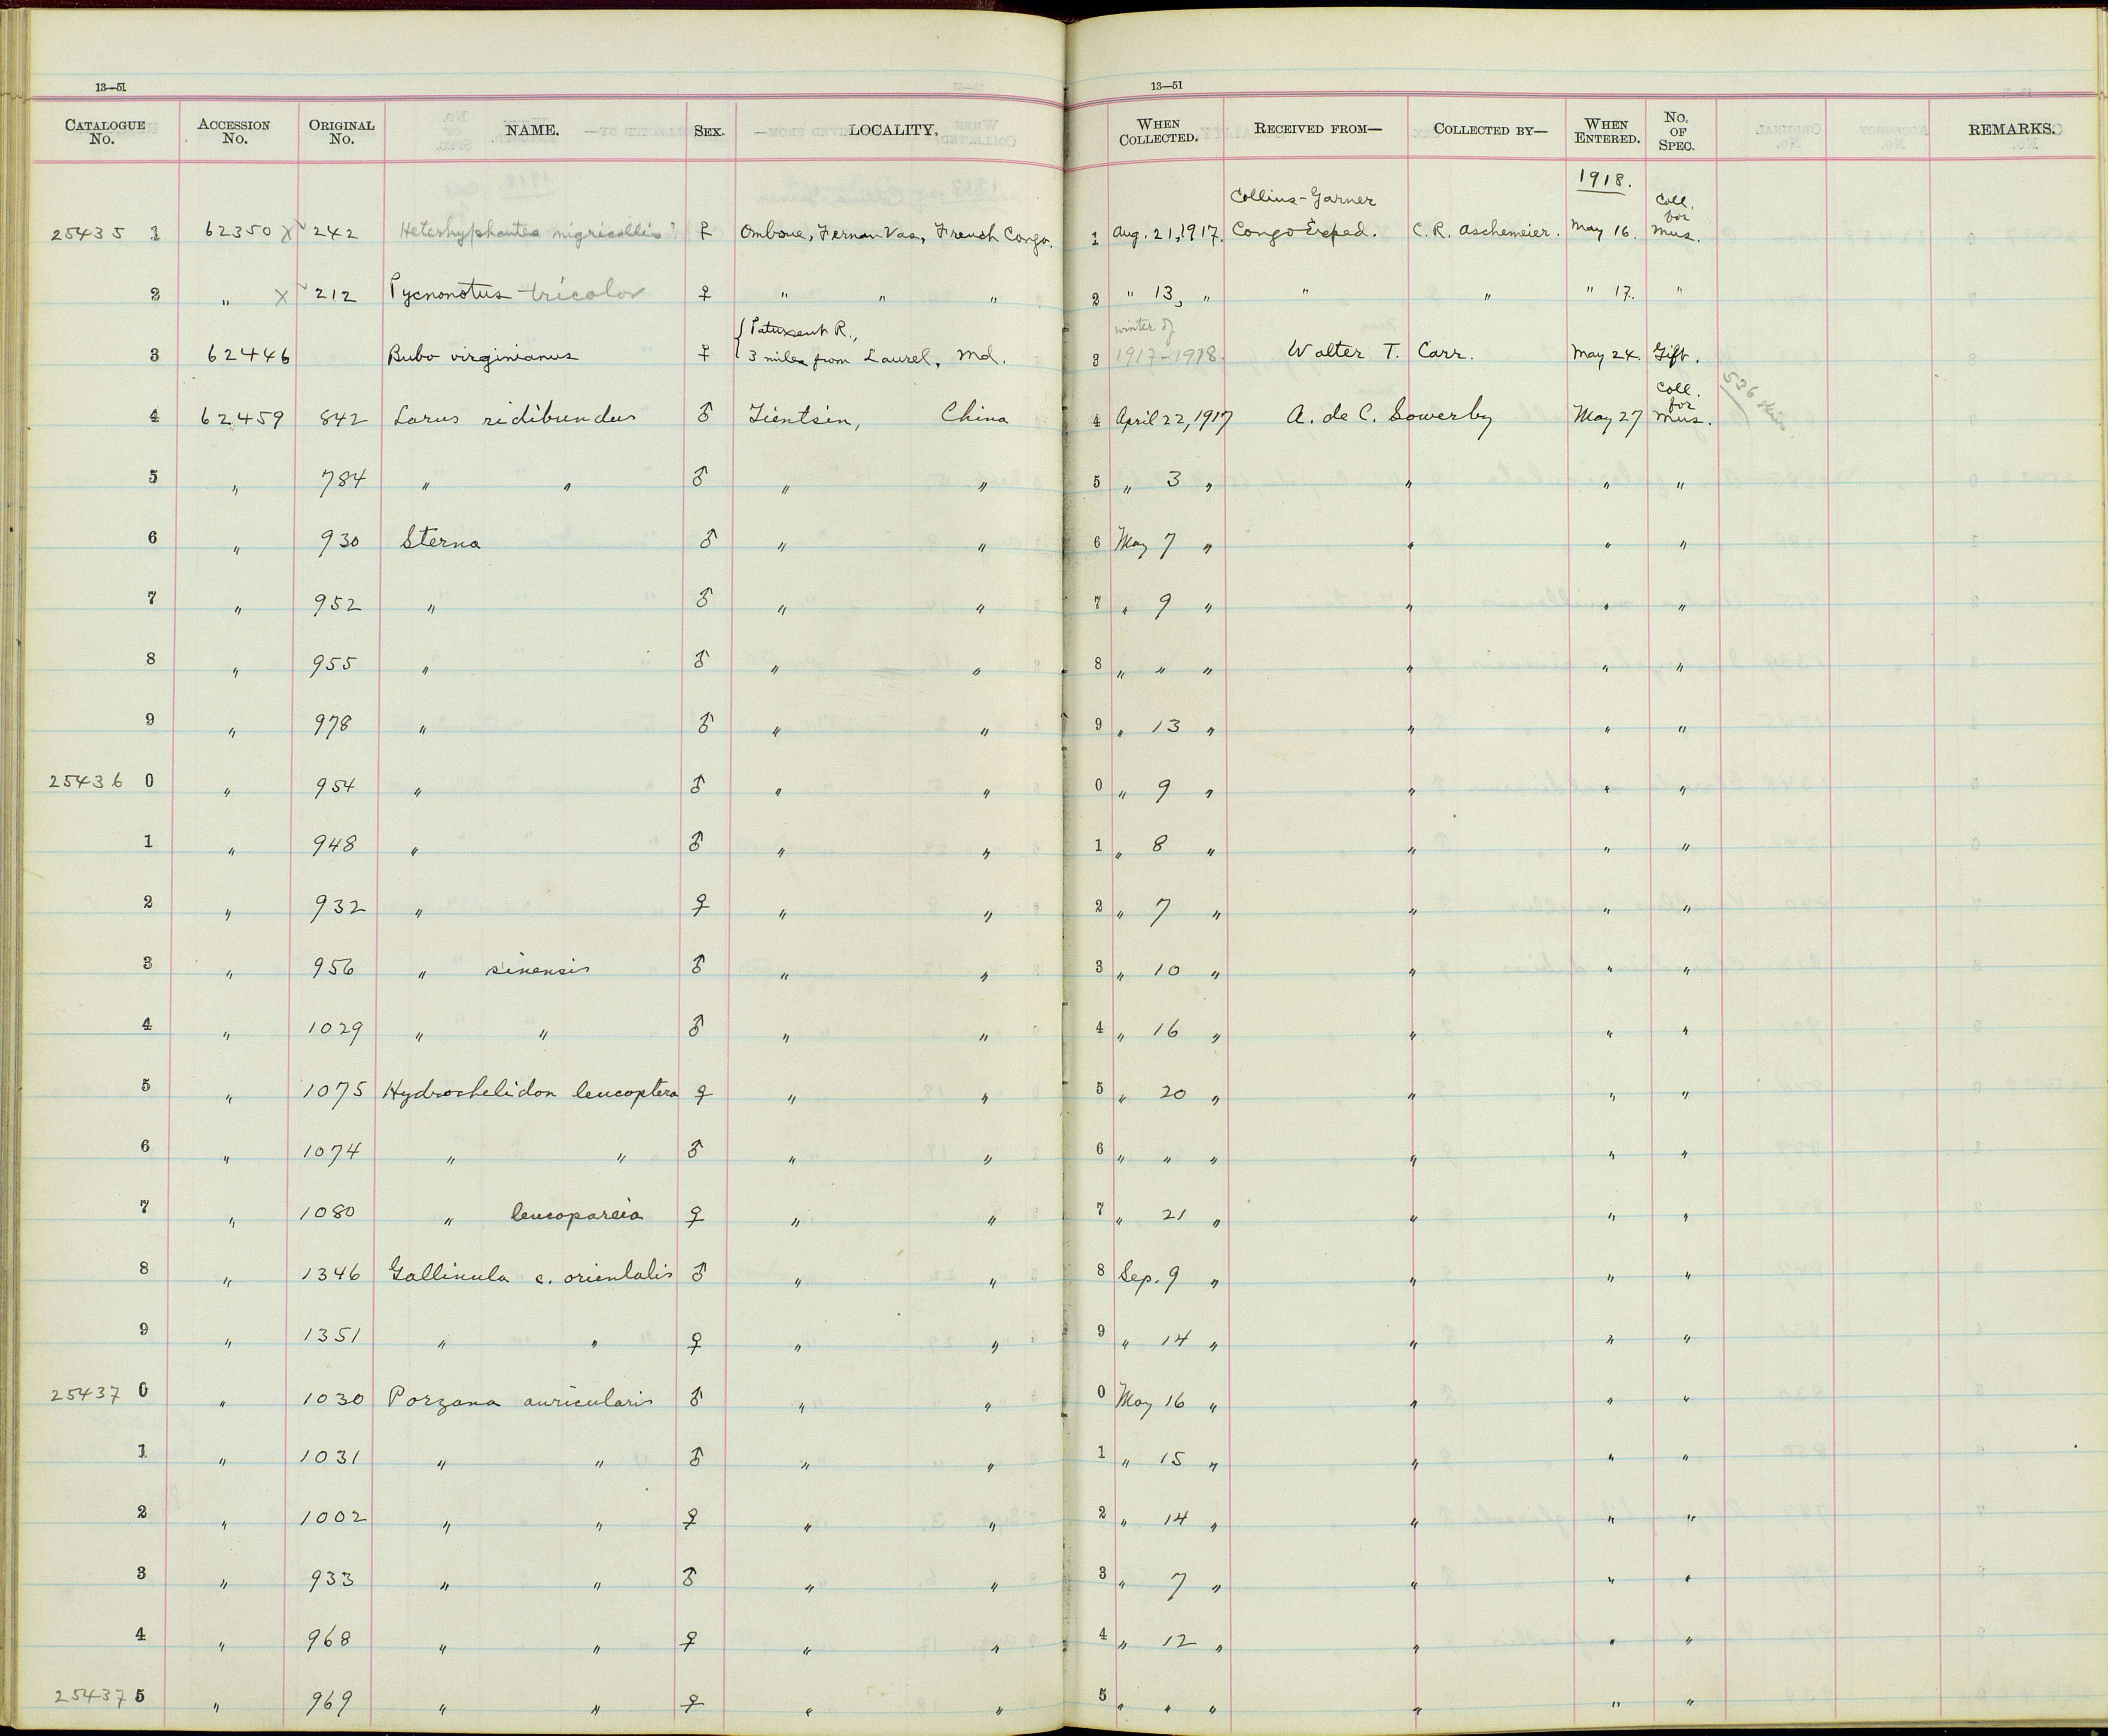 13—51
CATALOGUE No. ACCESSION No. ORIGINAL No. NAME. SEX. LOCALITY.
25435 1 62350 X 242 Heterhyphantes nigricollis? ♀ Omboue, Fernan Vaz, French Congo.
2 " X 212 Pycnonotus tricolor ♀ " " "
{Patuxent R.,
3 62446 Bubo virginianus ♀ 3 miles from Laurel, Md.
4 62459 842 Larus ridibundus ♂ Tientsin, China
5 " 784 " " ♂ " "
6 " 930 Sterna ♂ " "
7 " 952 " ♂ " "
8 " 955 " ♂ " "
9 " 978 " ♂ " "
25436 0 " 954 " ♂ " "
1 " 948 " ♂ " "
2 " 932 " ♀ " "
3 " 956 " sinensis ♂ " "
4 " 1029 " " ♂ " "
5 " 1075 Hydrochelidon leucoptera ♀ " "
6 " 1074 " " ♂ " "
7 " 1080 " leucopareia ♀ " "
8 " 1346 Gallinula c. orientalis ♂ " "
9 " 1351 " " ♀ " "
25437 0 " 1030 Porzana auricularis ♂ " "
1 " 1031 " " ♂ " "
2 " 1002 " " ♀ " "
3 " 933 " " ♂ " "
4 " 968 " " ♀ " "
25437 5 " 969 " " ♀ " "
13—51
WHEN COLLECTED. RECEIVED FROM— COLLECTED BY— WHEN ENTERED. No. OF SPEC. REMARKS.
1918.
Collins-Garner Coll. for
1 Aug. 21, 1917. Congo Exped. C. R. Aschemeier. May 16. Mus.
2 " 13, " " " " 17. "
winter of
3 1917-1918. Walter T. Carr. May 24. Gift.
Coll. for
4 April 22, 1917 A. de C. Sowerby May 27 Mus. 536 skins
5 " 3 " " " "
6 May 7 " " " "
7 " 9 " " " "
8 " " " " " "
9 " 13 " " " "
0 " 9 " " " "
1 " 8 " " " "
2 " 7 " " " "
3 " 10 " " " "
4 " 16 " " " "
5 " 20 " " " "
6 " " " " " "
7 " 21 " " " "
8 Sep. 9 " " " "
9 " 14 " " " "
0 May 16 " " " "
1 " 15 " " " "
2 " 14 " " " "
3 " 7 " " " "
4 " 12 " " " "
5 " " " " " "